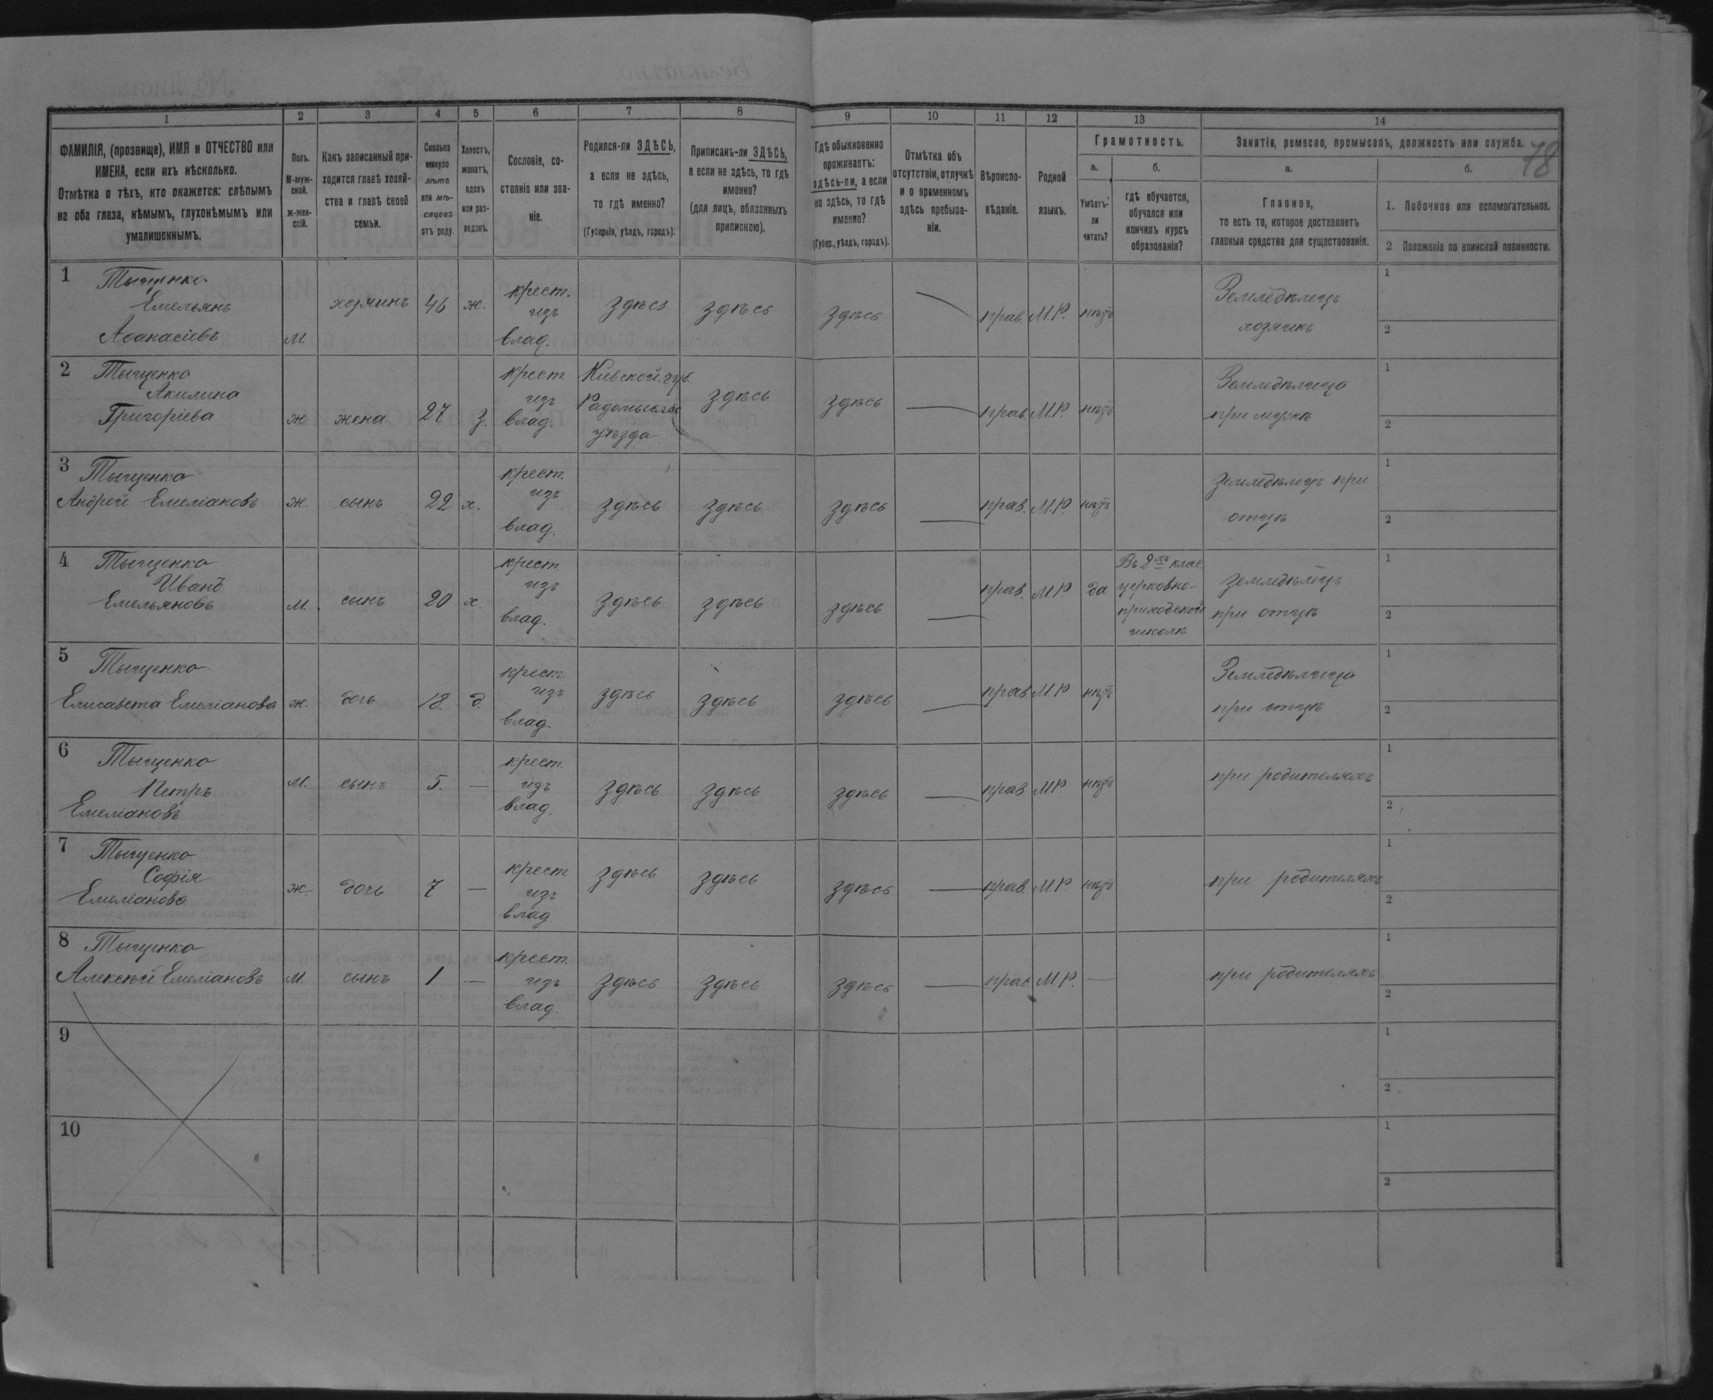 78
1
2
3
4
5
6
7
8
9
10
11
12
13
14
ФАМИЛІЯ, (прозвище), ИМЯ и ОТЧЕСТВО или
ИМЕНА, если ихъ нѣсколько.
Отмѣтка о тѣхъ, кто окажется: слѣпымъ
на оба глаза, нѣмымъ, глухонѣмымъ или
умалишеннымъ.
Полъ.
М-муж-
ской.
Ж-жен-
скій.
Какъ записанный при-
ходится главѣ хозяй-
ства и главѣ своей
семьи.
Сколько
минуло
лѣтъ
или мѣ-
сяцевъ
отъ роду.
Холостъ,
женатъ,
вдовъ
или раз-
веденъ.
Сословіе, со-
стояніе или зва-
ніе.
Родился-ли ЗДѢСЬ,
а если не здѣсь,
то гдѣ именно?
(Губернія, уѣздъ, городъ).
Приписанъ-ли ЗДѢСЬ,
а если не здѣсь, то гдѣ
именно?
(для лицъ, обязанныхъ
припискою).
Гдѣ обыкновенно
проживаетъ:
здѣсь-ли, а если
не здѣсь, то гдѣ
именно?
(Губер., уѣздъ, городъ).
Отмѣтка объ
отсутствіи, отлучкѣ
и о временномъ
здѣсь пребыва-
ніи.
Вѣроиспо-
вѣданіе.
Родной
языкъ.
Грамотность.
а.
Умѣетъ-
ли
читать?
б.
гдѣ обучается,
обучался или
кончилъ курсъ
образованія?
Занятіе, ремесло, промыселъ, должность или служба.
а.
Главное,
то есть то, которое доставляетъ
главныя средства для существованія.
б.
1. Побочное или вспомогательное.
2 Положеніе по воинской повинности.
1
Тыщенко
Емельянъ
Аѳанасіевъ
м.
хозяинъ
46
ж.
крест.
изъ
влад.
здѣсь
здѣсь
здѣсь
прав.
М.Р.
нѣтъ
Земледѣлецъ
хозяинъ
1
2
2
Тыщенко
Акилина
Григоріева
ж
жена
27
з.
крест
изъ
влад.
Кіевской губ.
Радомысль
уѣзда
здѣсь
здѣсь
прав
М.Р.
нѣтъ
Земледѣлица
при мужѣ
1
2
3
Тыщенко
Андрей Емеліановъ
ж.
сынъ
22
х.
крест.
изъ
влад.
здѣсь
здѣсь
здѣсь
прав.
М.Р.
нѣтъ
земледѣлецъ при
отцѣ
1
2
4
Тыщенко
Иванъ
Емельяновъ
м.
сынъ
20
х.
крест
изъ
влад.
здѣсь
здѣсь
здѣсь
прав.
М.Р.
да
Въ 2хъ клас
церковно-
приходской
школѣ
земледѣлецъ
при отцѣ
1
2
5
Тыщенко
Елисавета Емеліанова
ж.
дочь
18.
д.
крест.
изъ
влад.
здѣсь
здѣсь
здѣсь
прав
М.Р.
нѣтъ
Земледѣлица
при отцѣ
1
2
6
Тыщенко
Петръ
Емеліановъ
м.
сынъ
5.
—
крест.
изъ
влад.
здѣсь
здѣсь
здѣсь
прав
М.Р
нѣтъ
при родителяхъ
1
2
7
Тыщенко
Софія
Емеліанова
ж.
дочь
7
—
крест
изъ
влад
здѣсь
здѣсь
здѣсь
прав.
М.Р.
нѣтъ
при родителяхъ
1
2
8
Тыщенко
Алексѣй Емеліановъ
м.
сынъ
1
—
крест.
изъ
влад.
здѣсь
здѣсь
здѣсь
прав
М.Р.
—
при родителяхъ
1
2
9
1
2
10
1
2